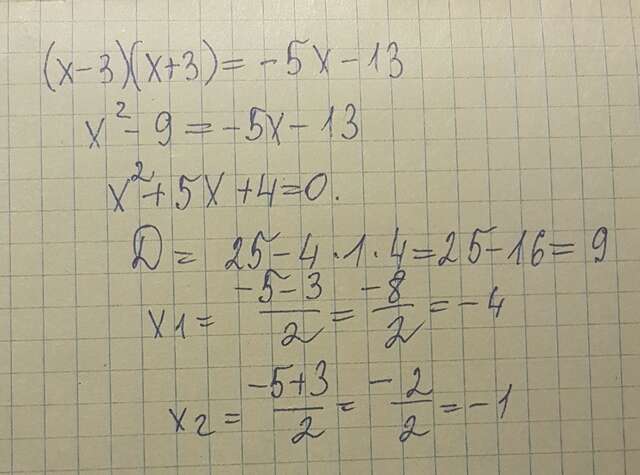 (x-3)(x+3) = -5x-13
x² - 9 = -5x - 13
x² + 5x + 4 = 0.
D = 25-4·1·4 = 25-16 = 9
x1 = (-5-3)/2 = -8/2 = -4
x2 = (-5+3)/2 = -2/2 = -1